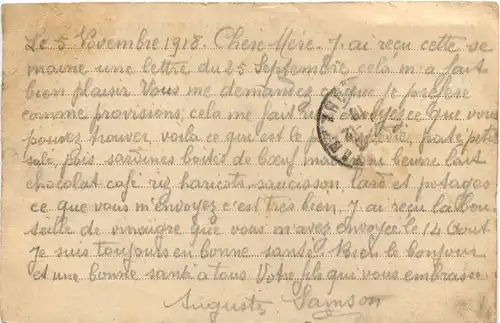 Le 5 Novembre 1918. Chere Mére. J ai reçu cette se
maine une lettre du 25 Septembre, cela m'a fait
bien plaisir. Vous me demandes ce que je préfère
comme provisions, cela me fait rien envoyes ce que vous
pouvez trouver, voila ce qui est le pate petit
sale, pois sardines boites de bœuf beurre lait
chocolat café riz haricots saucisson, lard et potages
ce que vous m'envoyez c'est très bien. J ai reçu la bou
teille de vinaigre que vous m'avez envoyée le 14 Aout
Je suis toujours en bonne santé. Bien le bonjour
et une bonne santé a tous Votre fils qui vous embrasse
Auguste Samson